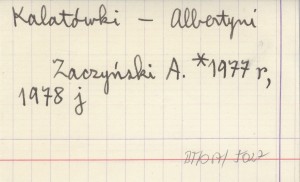 Kalatówki – Albertyni
Zaczyński A. *1977 r,
1978 j